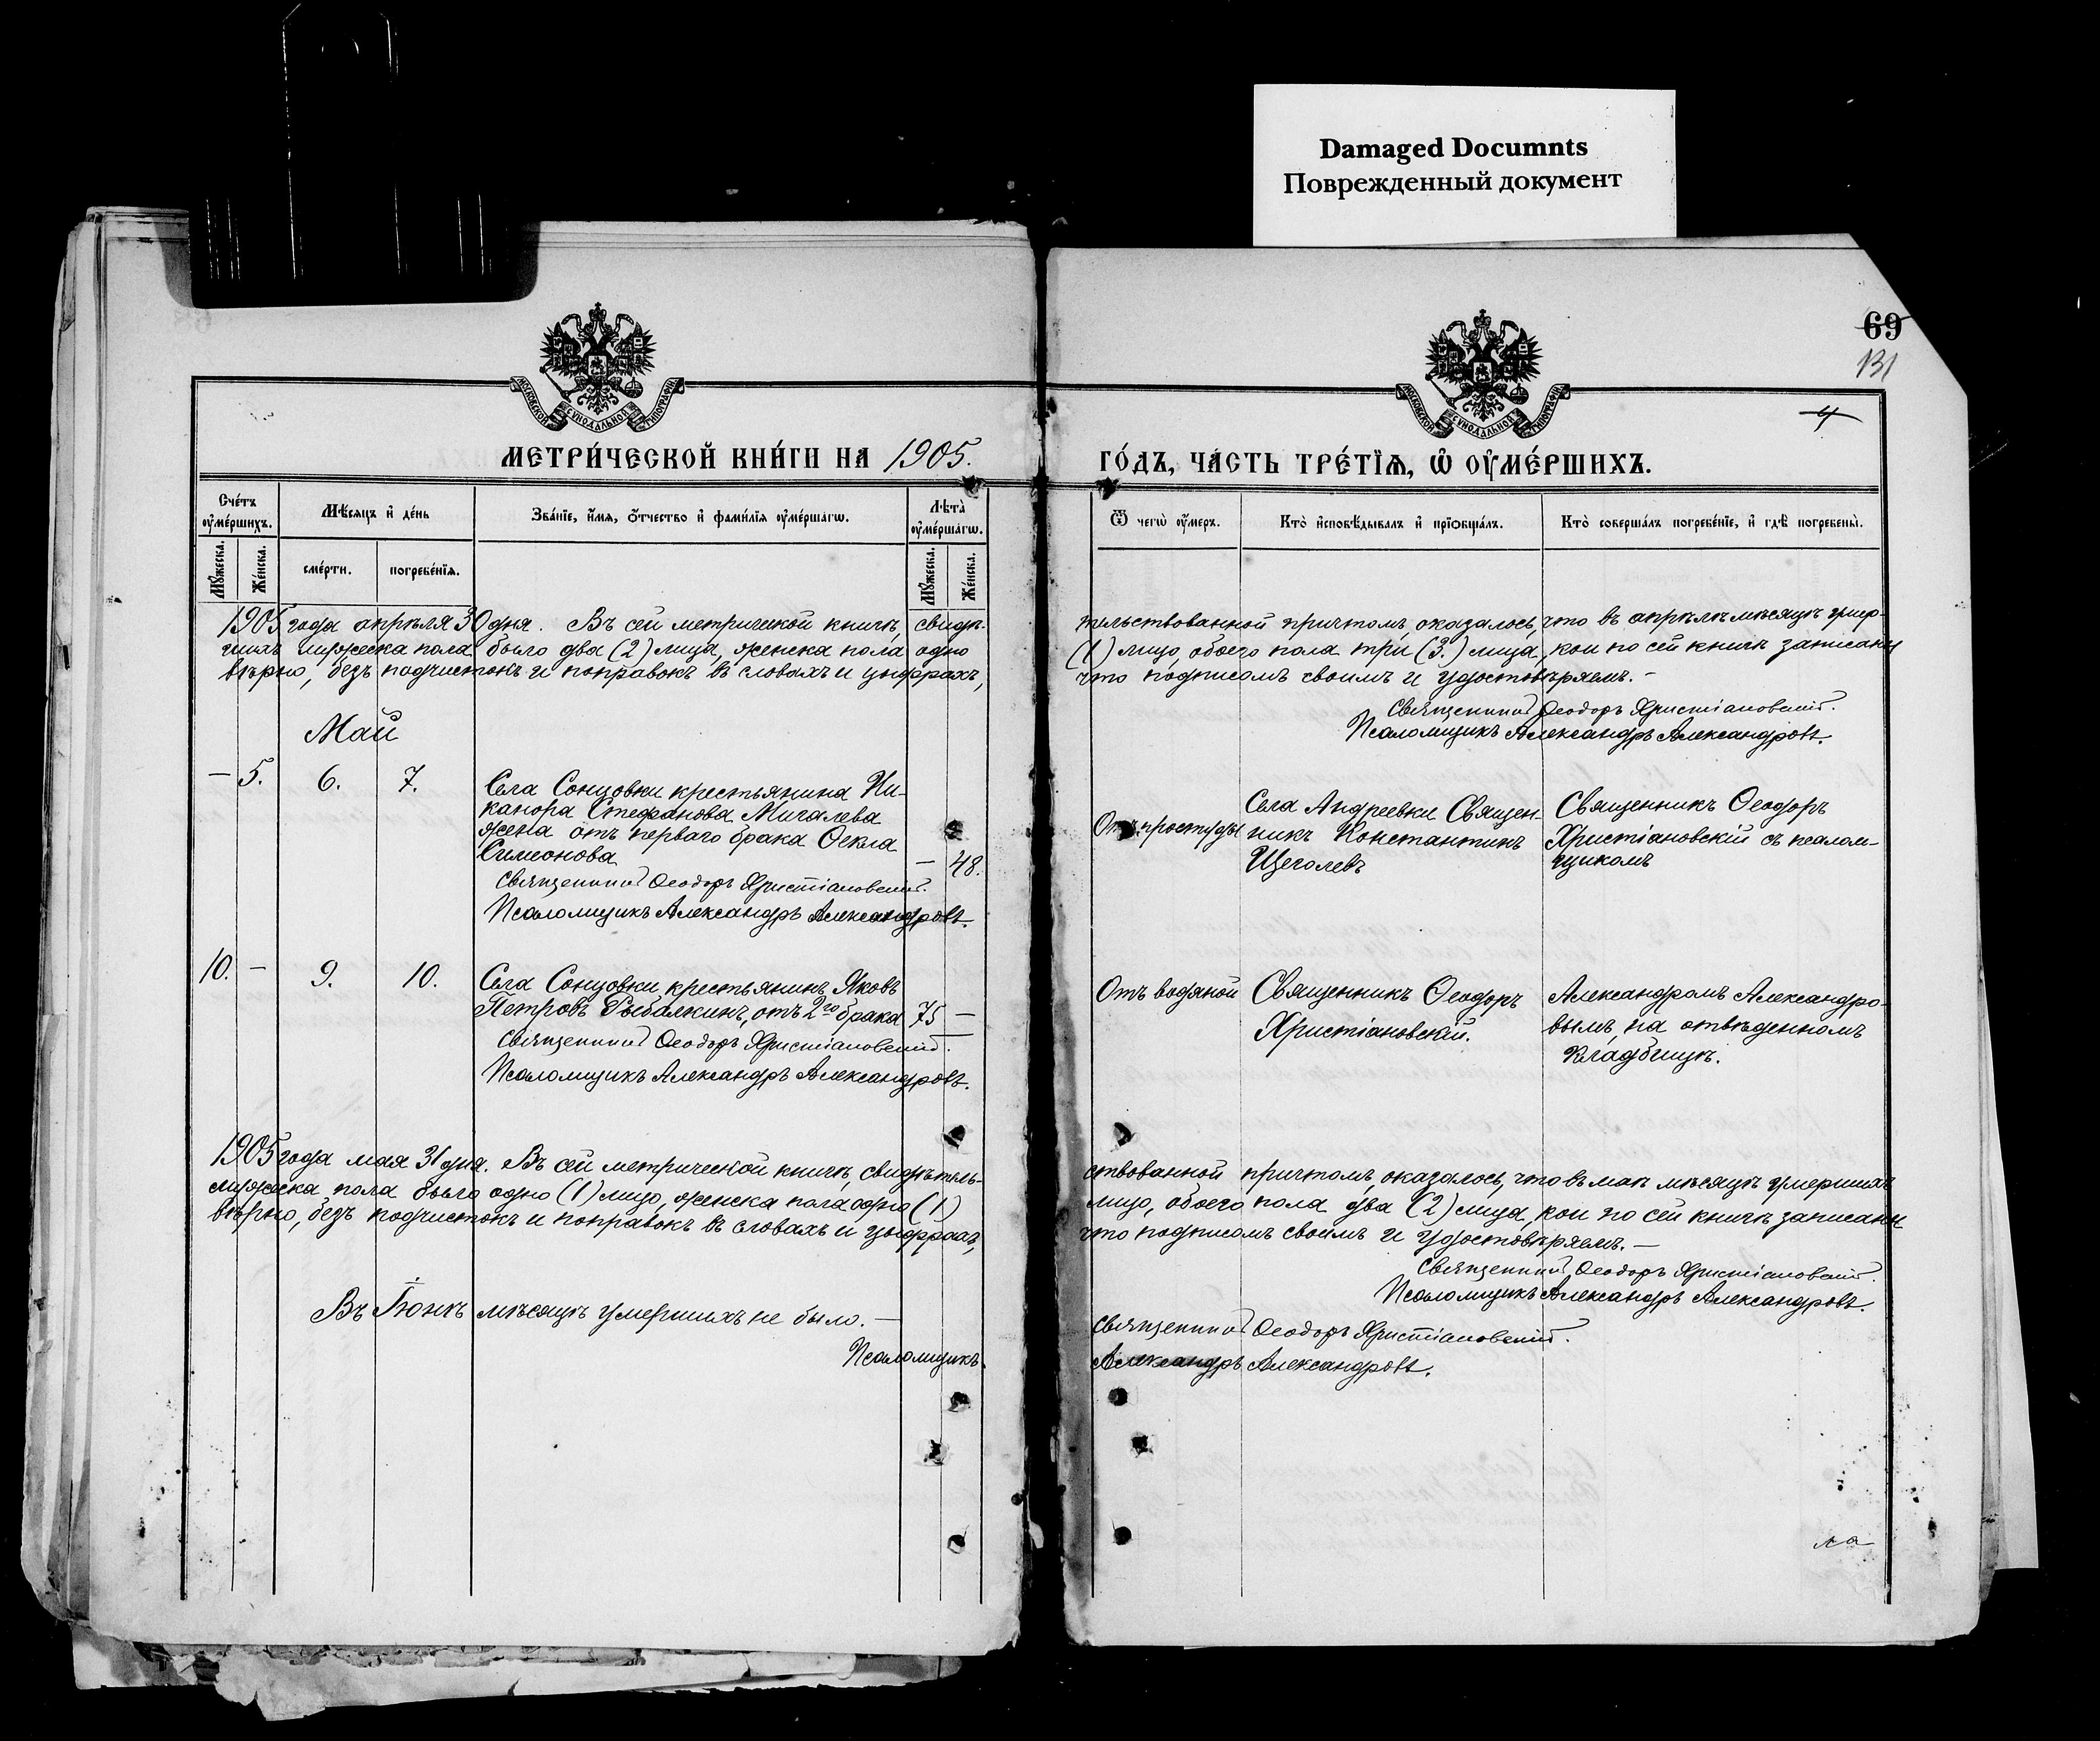 Damaged Documnts
Поврежденный документ
69
131
4
МОСКОВСКОЙ СѴНОДАЛЬНОЙ ТИПОГРАФІИ
МОСКОВСКОЙ СѴНОДАЛЬНОЙ ТИПОГРАФІИ
МЕТРИ́ЧЕСКОЙ КНИ́ГИ НА 1905.
ГО́ДЪ, ЧА́СТЬ ТРЕ́ТЇѦ, Ѡ҆ ОУ҆МЕ́РШИХЪ.
Сче́тъ оу҆ме́ршихъ.
Мѣ́сяцъ и҆ де́нь
Зва́нїе, и҆́мя, ѻ҆́тчество и҆ фами́лїя оу҆ме́ршагѡ.
Лѣта̀ оу҆ме́ршагѡ.
Мꙋ́жеска.
Же́нска.
сме́рти.
погребе́нїя.
Мꙋ́жеска.
Же́нска.
Ѿ чегѡ̀ оу҆́меръ.
Кто̀ и҆сповѣ́дывалъ и҆ прїѡбща́лъ.
Кто̀ соверша́лъ погребе́нїе, и҆ гдѣ̀ погребены̀.
1905 года апрѣля 30 дня. Въ сей метрической книгѣ, свидѣ-
тельствованной причтомъ, оказалось, что въ апрѣлѣ мѣсяцѣ умер-
шихъ мужеска пола было два (2) лица, женска пола одно
(1) лицо, обоего пола три (3.) лица, кои по сей книгѣ записаны
вѣрно, безъ подчистокъ и поправокъ въ словахъ и цыфрахъ,
что подписомъ своимъ и удостовѣряемъ. -
Священникъ Ѳеодоръ Христіановскій.
Псаломщикъ Александръ Александровъ.
Май
— 5. 6. 7.
Села Сонцовки крестьянина Ни-
канора Стефанова Мигалева
жена отъ перваго брака Ѳекла
Симеонова — 48.
Священникъ Ѳеодоръ Христіановскій.
Псаломщикъ Александръ Александровъ.
Отъ простуды
Села Андреевки Священ-
никъ Константинъ
Щеголевъ
Священникъ Ѳеодоръ
Христіановскій съ псалом-
щикомъ
10. — 9. 10.
Села Сонцовки крестьянинъ Яковъ
Петровъ Рыбалкинъ, отъ 2го брака 75 —
Священникъ Ѳеодоръ Христіановскій.
Псаломщикъ Александръ Александровъ.
Отъ водяной
Священникъ Ѳеодоръ
Христіановскій.
Александромъ Александро-
вымъ, на отвѣденномъ
кладбищѣ.
1905 года мая 31 дня. Въ сей метрической книгѣ, свидѣтель-
ствованной причтомъ, оказалось, что въ маѣ мѣсяцѣ умершихъ
мужеска пола было одно (1) лицо, женска пола одно (1)
лицо, обоего пола два (2) лица, кои по сей книгѣ записаны
вѣрно, безъ подчистокъ и поправокъ въ словахъ и цыфрахъ,
что подписомъ своимъ и удостовѣряемъ. —
Священникъ Ѳеодоръ Христіановскій.
Псаломщикъ Александръ Александровъ.
Въ Іюнѣ мѣсяцѣ умершихъ не было. —
Священникъ Ѳеодоръ Христіановскій.
Псаломщикъ Александръ Александровъ.